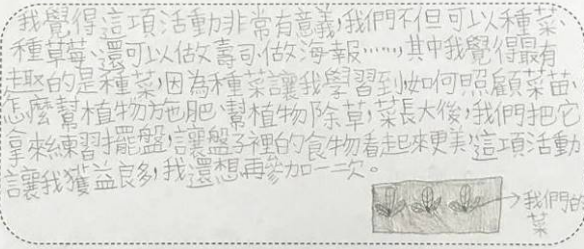 我覺得這項活動非常有意義，我們不但可以種菜、
種草莓、還可以做壽司、做海報……，其中我覺得最有
趣的是種菜，因為種菜讓我學習到如何照顧菜苗、
怎麼幫植物施肥、幫植物除草，菜長大後，我們把它
拿來練習擺盤，讓盤子裡的食物看起來更美，這項活動
讓我獲益良多，我還想再參加一次。
→我們的
菜